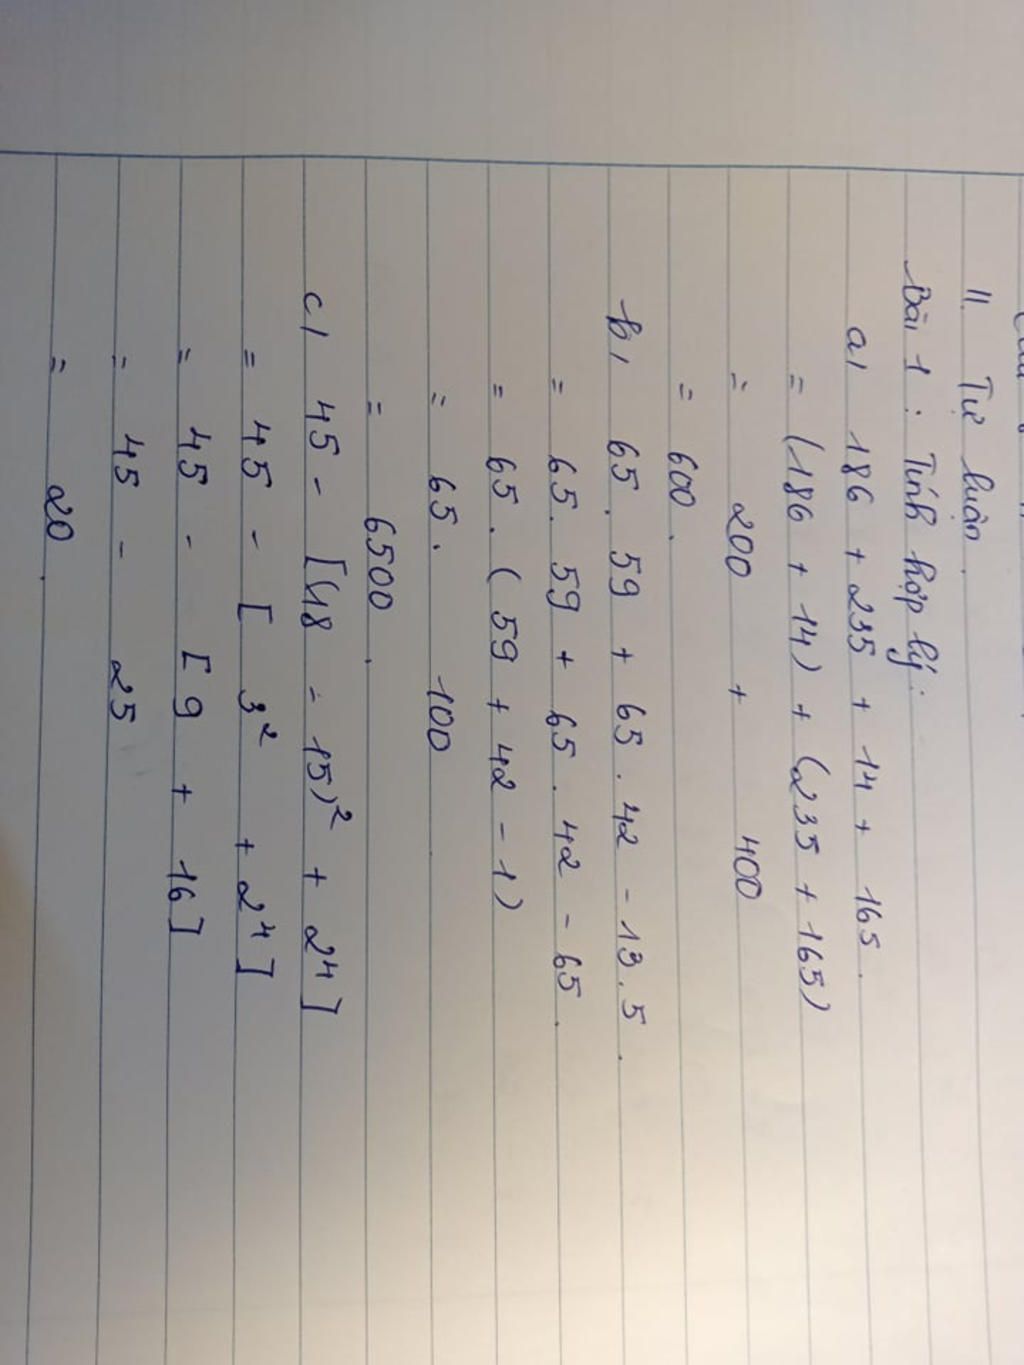 II. Tự luận.
Bài 1: Tính hợp lý.
a) 186 + 235 + 14 + 165.
= (186 + 14) + (235 + 165)
= 200 + 400
= 600.
b) 65 . 59 + 65 . 42 - 13 . 5.
= 65 . 59 + 65 . 42 - 65.
= 65 . (59 + 42 - 1)
= 65 . 100
= 6500.
c) 45 - [(18 - 15)² + 2⁴]
= 45 - [ 3² + 2⁴]
= 45 - [9 + 16]
= 45 - 25
= 20.